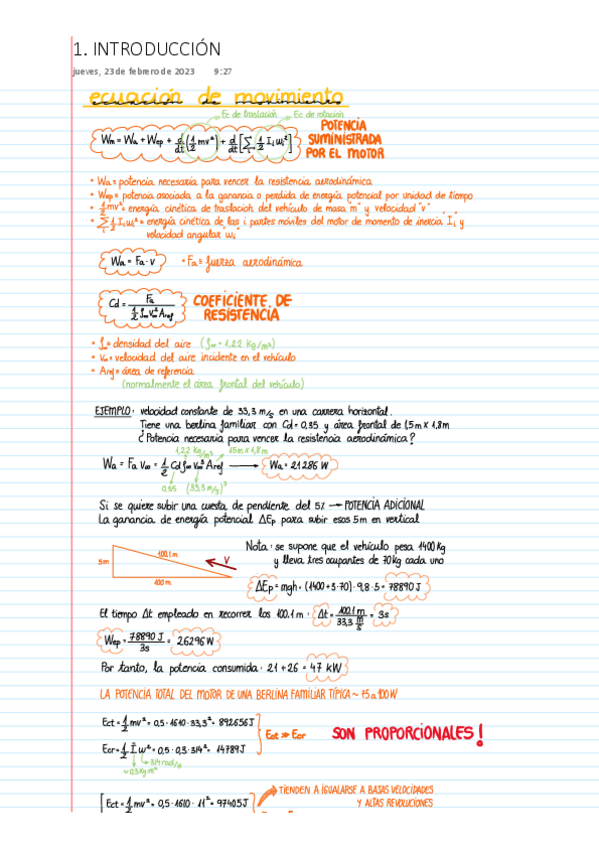 1. INTRODUCCIÓN
jueves, 23 de febrero de 2023 9:27
ecuación de movimiento
Ec de traslación Ec de rotación
Wm = Wa + Wep + d/dt (1/2 mv²) + d/dt [Σi 1/2 Ii ωi²]
POTENCIA SUMINISTRADA POR EL MOTOR
• Wa = potencia necesaria para vencer la resistencia aerodinámica
• Wep = potencia asociada a la ganancia o perdida de energía potencial por unidad de tiempo
• 1/2 mv² = energía cinética de traslación del vehículo de masa "m" y velocidad "v"
• Σi 1/2 Ii ωi² = energía cinética de las i partes móviles del motor de momento de inercia "Ii" y
velocidad angular "ωi"
Wa = Fa · v • Fa = fuerza aerodinámica
Cd = Fa / 1/2 ρ∞ V∞² Aref
COEFICIENTE DE RESISTENCIA
• ρ∞ = densidad del aire (ρ∞ = 1,22 kg/m³)
• V∞ = velocidad del aire incidente en el vehículo
• Aref = área de referencia
(normalmente el área frontal del vehículo)
EJEMPLO: velocidad constante de 33,3 m/s en una carrera horizontal.
Tiene una berlina familiar con Cd = 0,35 y área frontal de 1,5m x 1,8m
¿Potencia necesaria para vencer la resistencia aerodinámica?
1,22 kg/m³ 1,5m x 1,8m
Wa = Fa V∞ = 1/2 Cd ρ∞ V∞³ Aref → Wa = 21286 W
0,35 (33,3 m/s)³
Si se quiere subir una cuesta de pendiente del 5% → POTENCIA ADICIONAL
La ganancia de energía potencial ΔEp para subir esos 5m en vertical
5m 100,1m 100m V
Nota: se supone que el vehículo pesa 1400 Kg
y lleva tres ocupantes de 70 kg cada uno
ΔEp = mgh = (1400 + 3·70) · 9,8 · 5 = 78890 J
El tiempo Δt empleado en recorrer los 100.1 m: Δt = 100,1 m / 33,3 m/s = 3s
Wep = 78890 J / 3s = 26296 W
Por tanto, la potencia consumida: 21 + 26 = 47 kW
LA POTENCIA TOTAL DEL MOTOR DE UNA BERLINA FAMILIAR TÍPICA ~ 75 a 100 W
Ect = 1/2 mv² = 0,5 · 1610 · 33,3² = 892656 J
Ecr = 1/2 I ω² = 0,5 · 0,3 · 314² = 14789 J
Ect ≫ Ecr
SON PROPORCIONALES!
314 rad/s
~ 0,3 Kg·m²
Ect = 1/2 mv² = 0,5 · 1610 · 11² = 97405 J
TIENDEN A IGUALARSE A BAJAS VELOCIDADES
Y ALTAS REVOLUCIONES